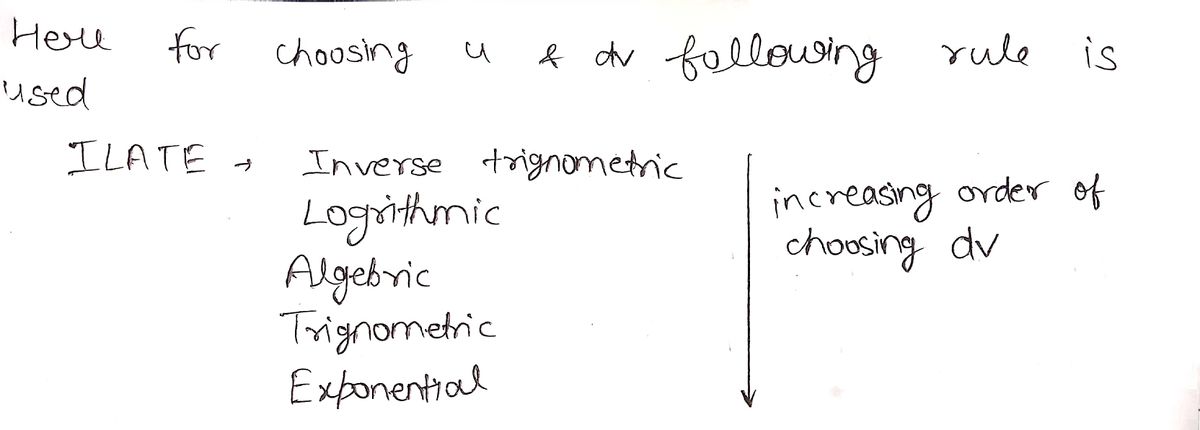 Here for choosing u & dv following rule is
used
ILATE → Inverse trignometric
Logrithmic
Algebric
Trignometric
Exponential
increasing order of
choosing dv